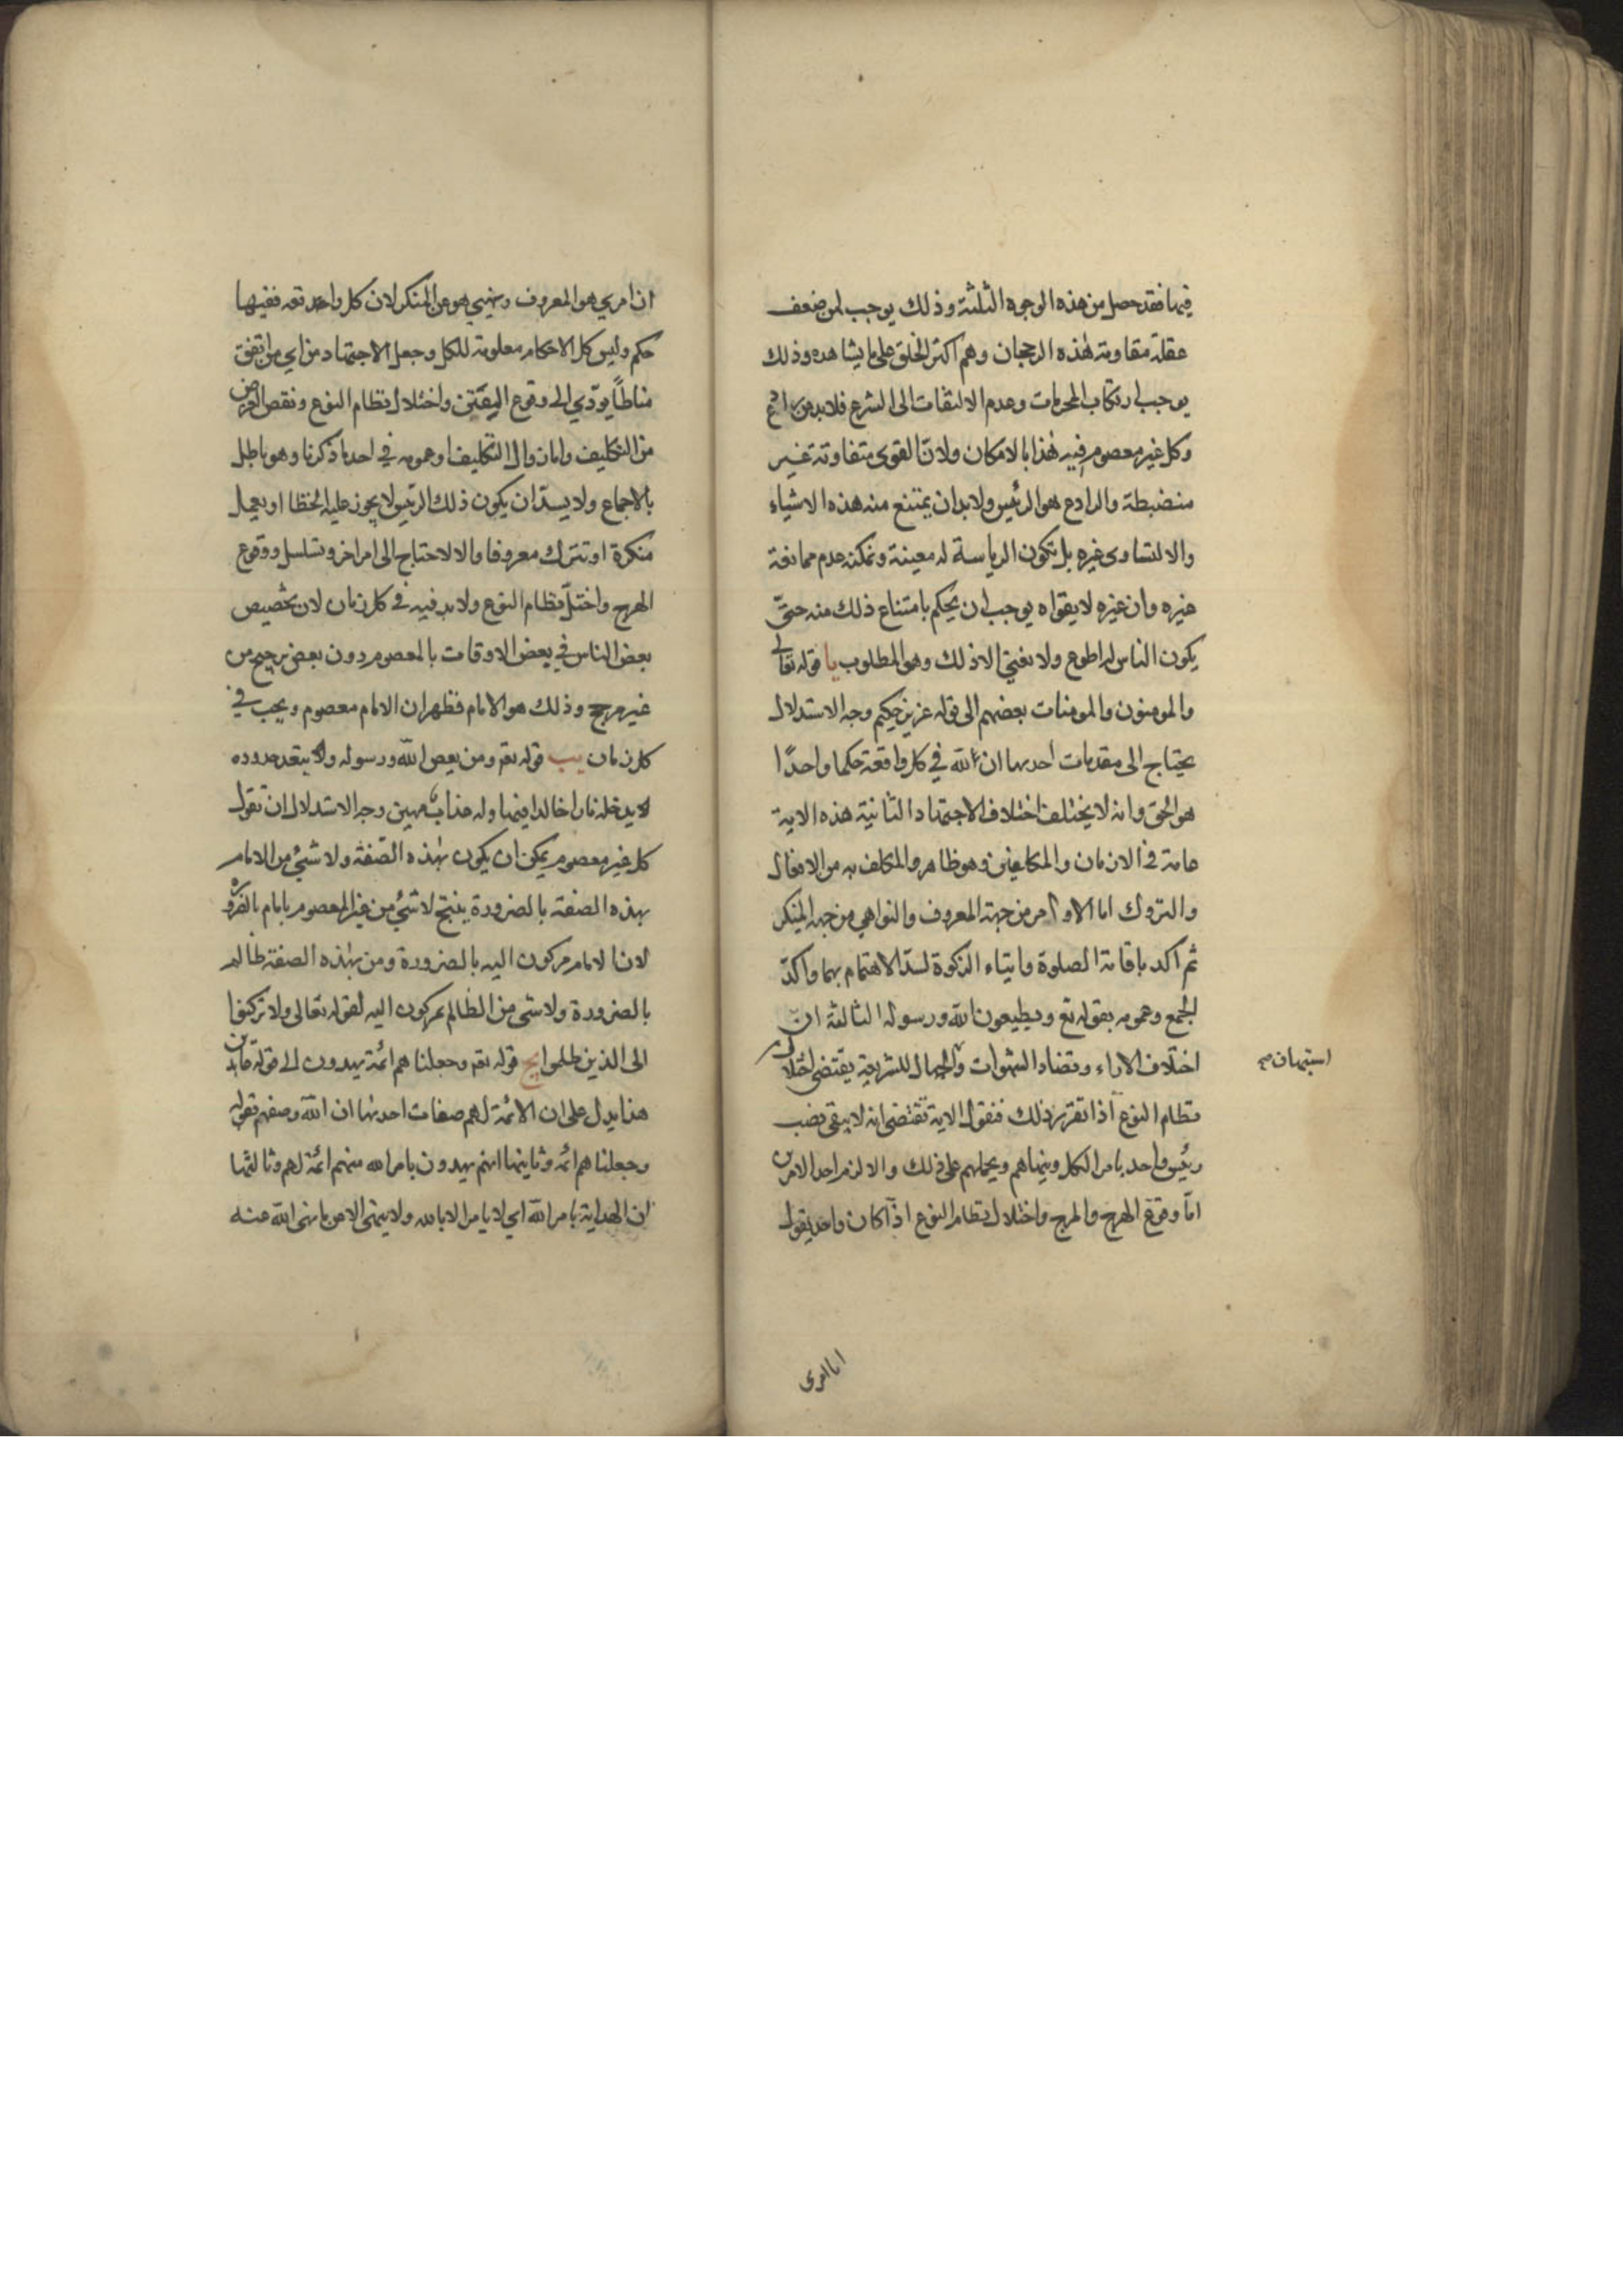 فيها فقد حصل من هذه الوجوه الثلثة وذلك يوجب لمن ضعف
عقله مقاومة لهذه الرجحان وهم اكثر الخلق على ما يشاهد وذلك
يوجب ارتكاب المحرمات وعدم الالتفات الى الشرع فلا بد من رادع
وكل غير معصوم فيه هذا بالامكان ولان القوى متفاوتة غير
منضبطة والرادع هو الرئيس ولا بد ان يمتنع منه هذه الاشياء
والا لتساوى غيره بل تكون الرياسة له معينة وتمكنه عدم ممانعة
غيره وان غيره لا يقواه يوجب ان يحكم بامتناع ذلك منه حتى
يكون الناس له اطوع ولا نعني الا ذلك وهو المطلوب يا قوله تعالى
والمومنون والمومنات بعضهم الى قوله عزيز حكيم وجه الاستدلال
يحتاج الى مقدمات احديها ان لله في كل واقعة حكما واحدًا
هو الحق وانه لا يختلف باختلاف الاجتهاد الثانية هذه الاية
عامة في الازمان والمكلفين وهو ظاهر والمكلف به من الافعال
والتروك اما الاوامر من جهة المعروف والنواهي من جهة المنكر
ثم اكد باقامة الصلوة وايتاء الزكوة لشدّ الاهتمام بهما واكدّ
الجمع وعمومه بقوله تع ويطيعون الله ورسوله الثالثة انّ
اختلاف الاراء وتضاد الشهوات والجهال للشريعة يقتضى اختلال
استهان صح
نظام النوع اذا تقرر ذلك فنقول الاية تقتضى انه لا يبقى نصب
رئيس واحد يامر الكل وينهاهم ويحملهم على ذلك والا لزم احد الامرين
امّا وقوع الهرج والمرج واختلال نظام النوع اذا كان واحد يقول
انا امرى
ان امري هو المعروف ونهيي هو عن المنكر لان كل واحد
حكم وليس كل الاحكام معلومة للكل وجعل الاجتهاد من اي من اتفق
مناطًا يودّي الى وقوع الفتن واختلال نظام النوع ونقص الغرض
من التكليف واما زوال التكليف او عمومه في احد ما ذكرنا وهو باطل
بالاجماع ولا بدّ ان يكون ذلك الرئيس لا يجوز عليه الخطا او يعمل
منكرة او تترك معروفا والا لاحتاج الى امر اخر وتسلسل ووقوع
الهرج واختلّ نظام النوع ولا بد فيه في كل زمان لان تخصيص
بعض الناس في بعض الاوقات بالمعصوم دون بعض ترجيح من
غير مرجح وذلك هو الامام فظهر ان الامام معصوم ويجب في
كل زمان يب قوله تع ومن يعص الله ورسوله ويتعد حدوده
يدخله نارا خالدا فيها وله عذاب مهين وجه الاستدلال ان نقول
كل غير معصوم يمكن ان يكون بهذه الصّفة ولا شيئ من الامام
بهذه الصفة بالضرورة ينتج لا شيئ من غير المعصوم بامام بالضرورة
لان الامام مركون اليه بالضرورة ومن بهذه الصفة ظالم
بالضرورة ولا شي من الظالم بمركون اليه لقوله تعالى ولا تركنوا
الى الذين ظلموا يج قوله تع وجعلنا هم ائمة يهدون الى قوله عابدين
هذا يدل على ان الائمة لهم صفات احدیها ان الله وصفهم بقوله
وجعلنا هم ائمه وثانيها انهم يهدون بامر الله منهم ائمة لهم وثالثها
ان الهداية بامر الله اي لا يامر الا بالله ولا ينهى الا عن ما نهى الله عنه